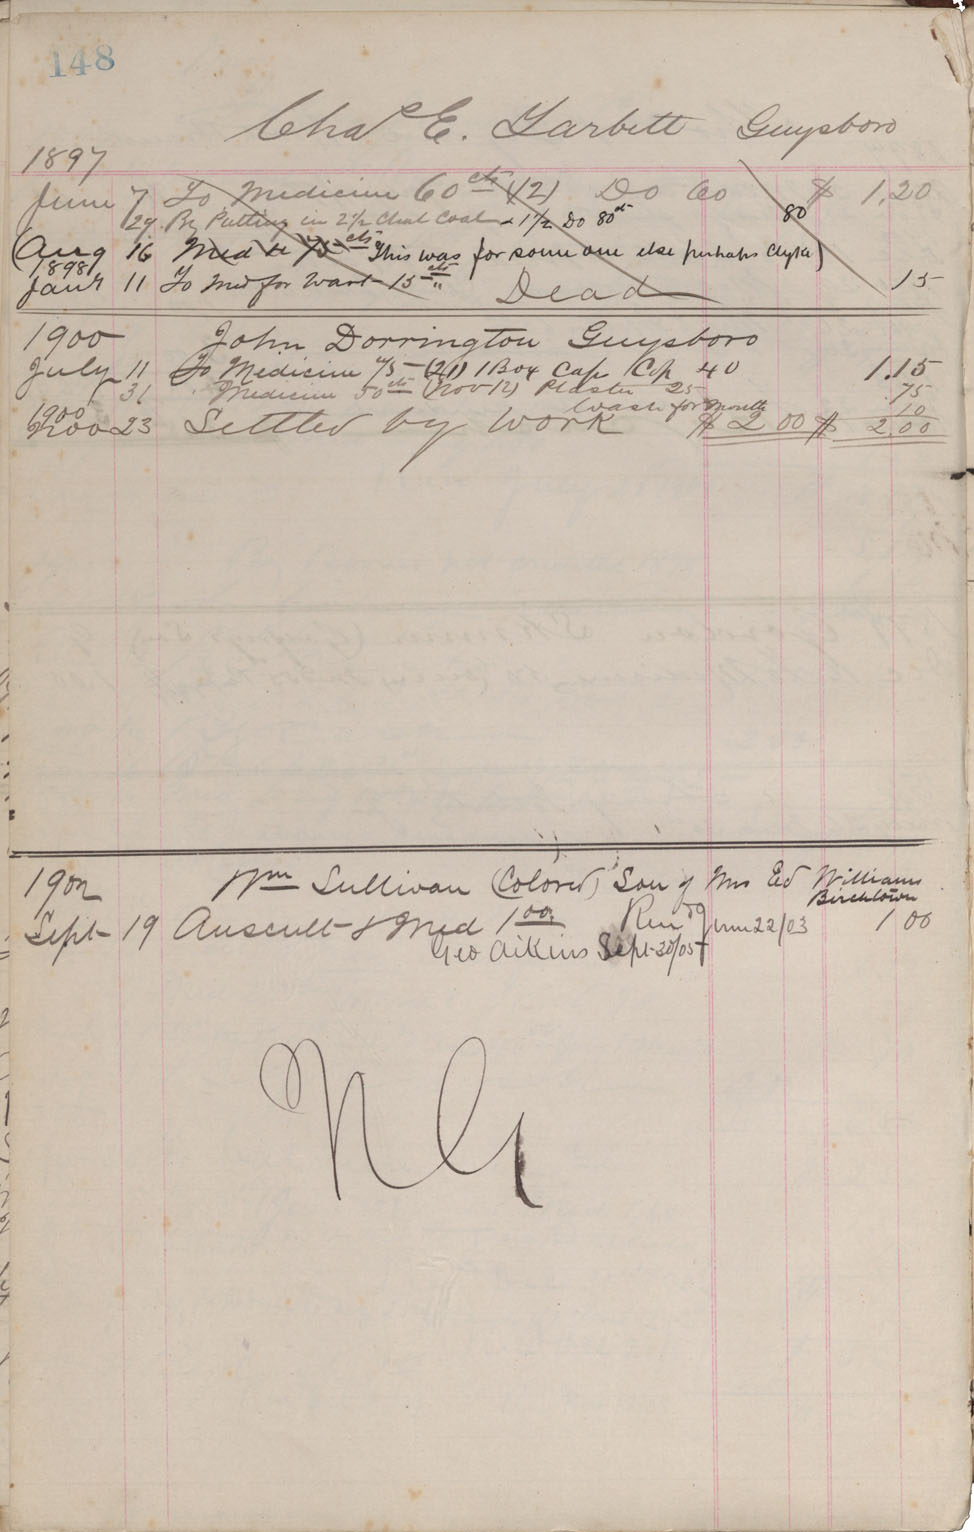 148
Chas E. Tarbett Guysboro
1897
June 7 To Medicine 60 cts (12) Do 60 $ 1.20
29 By Putting in 2 1/2 Chal Coal & 1 1/2 Do 80 cts 80
(Aug 16 Med 75 cts This was for some one else perhaps)
1898
Jany 11 To Med for Wart 15 cts Dead 15
1900 John Dorrington Guysboro
July 11 To Medicine 75 (21) 1 Box Cap 40 1.15
31 Medicine 50 cts (Nov 12) Plaster 25 .75
Wash for Mouth 10
1900
Nov 23 Settled by Work $ 2 00 $ 2.00
1902 Wm Sullivan (Colored) Son of Mrs Ed Williams
Birchtown
Sept 19 Auscult & Med 1 00 Rend June 22/03 1 00
Geo Aikins Sept 30/05
N G